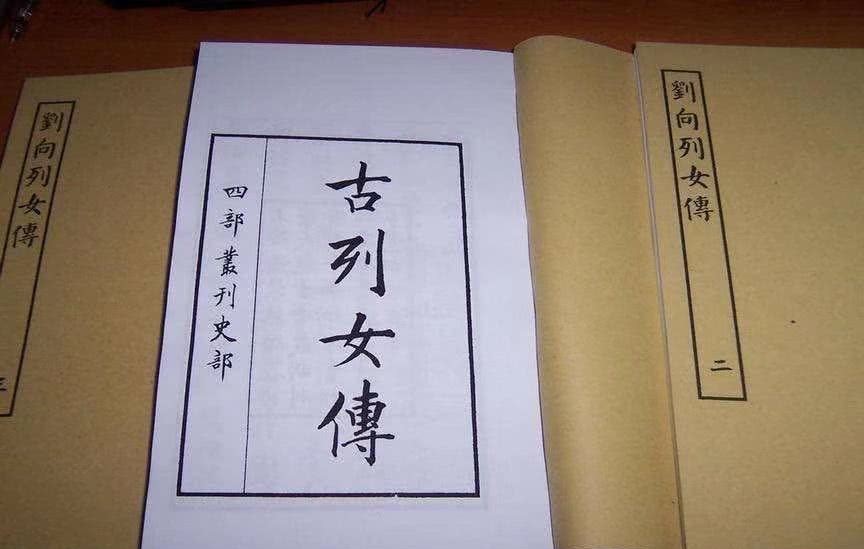 劉向列女傳
三
古列女傳
四部叢刊史部
劉向列女傳
二